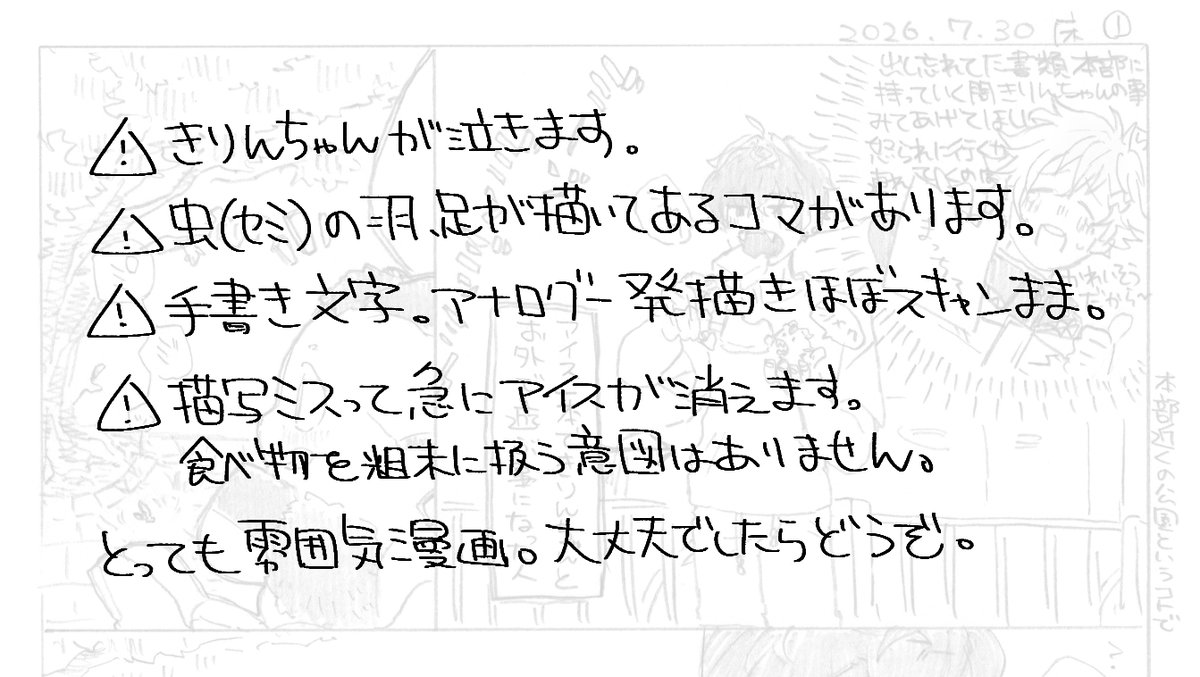 2026.7.30 ①
出し忘れてた書類本部に
持っていく間きりんちゃんの事
みてあげてほしい
⚠きりんちゃんが泣きます。
⚠虫(セミ)の羽、足が描いてあるコマがあります。
⚠手書き文字。アナログ一発描きほぼスキャンまま。
⚠描写ミスって急にアイスが消えます。
食べ物を粗末に扱う意図はありません。
とっても雰囲気漫画。大丈夫でしたらどうぞ。